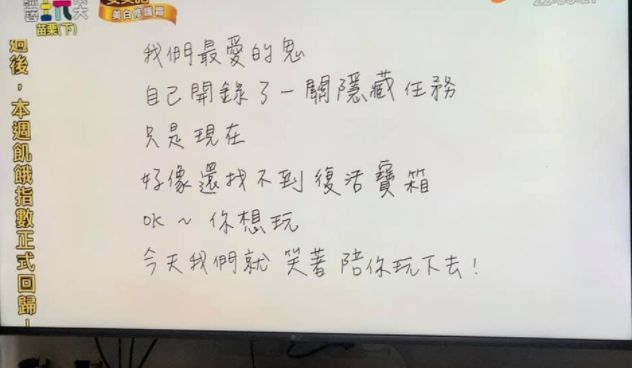 苗栗(下)
我們最愛的鬼
自己開錄了一關隱藏任務
只是現在
好像還找不到復活寶箱
OK ~ 你想玩
今天我們就 笑著陪你玩下去!
後,本週飢餓指數正式回歸!